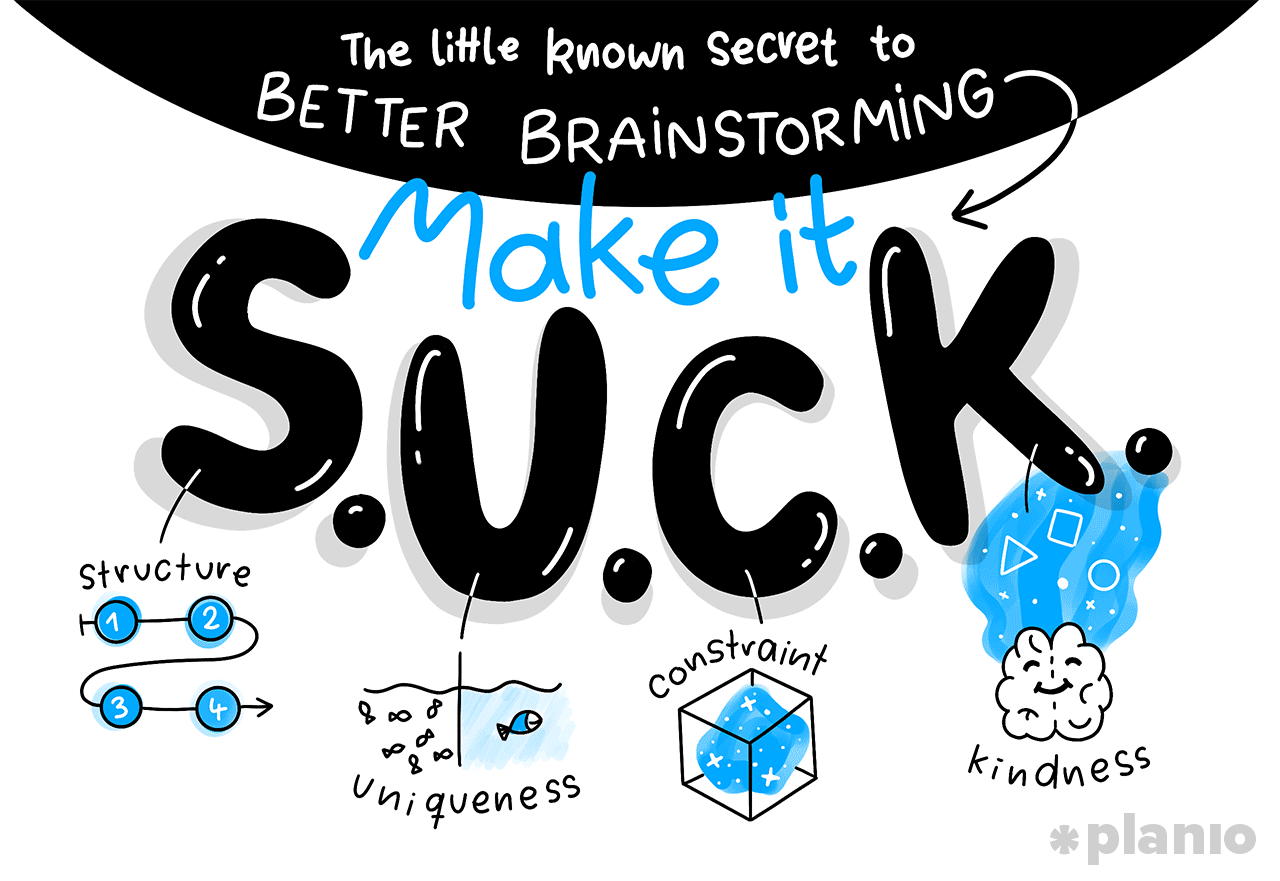 The little known secret to
BETTER BRAINSTORMING
Make it
S.U.C.K.
structure
1 2
3 4
uniqueness
constraint
kindness
*planio